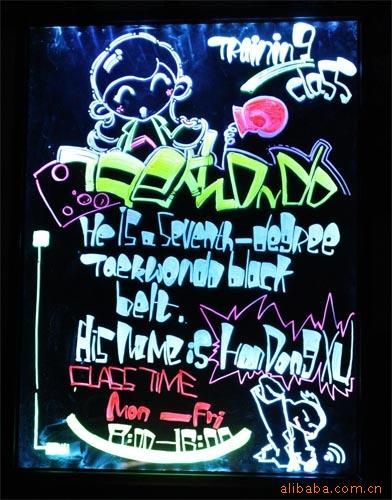 Training
class
Taekwondo
He is a Seventh-degree
Taekwondo black
belt.
His name is HanDongXU
CLASS TIME
Mon — Fri
8:00-16:00
alibaba.com.cn